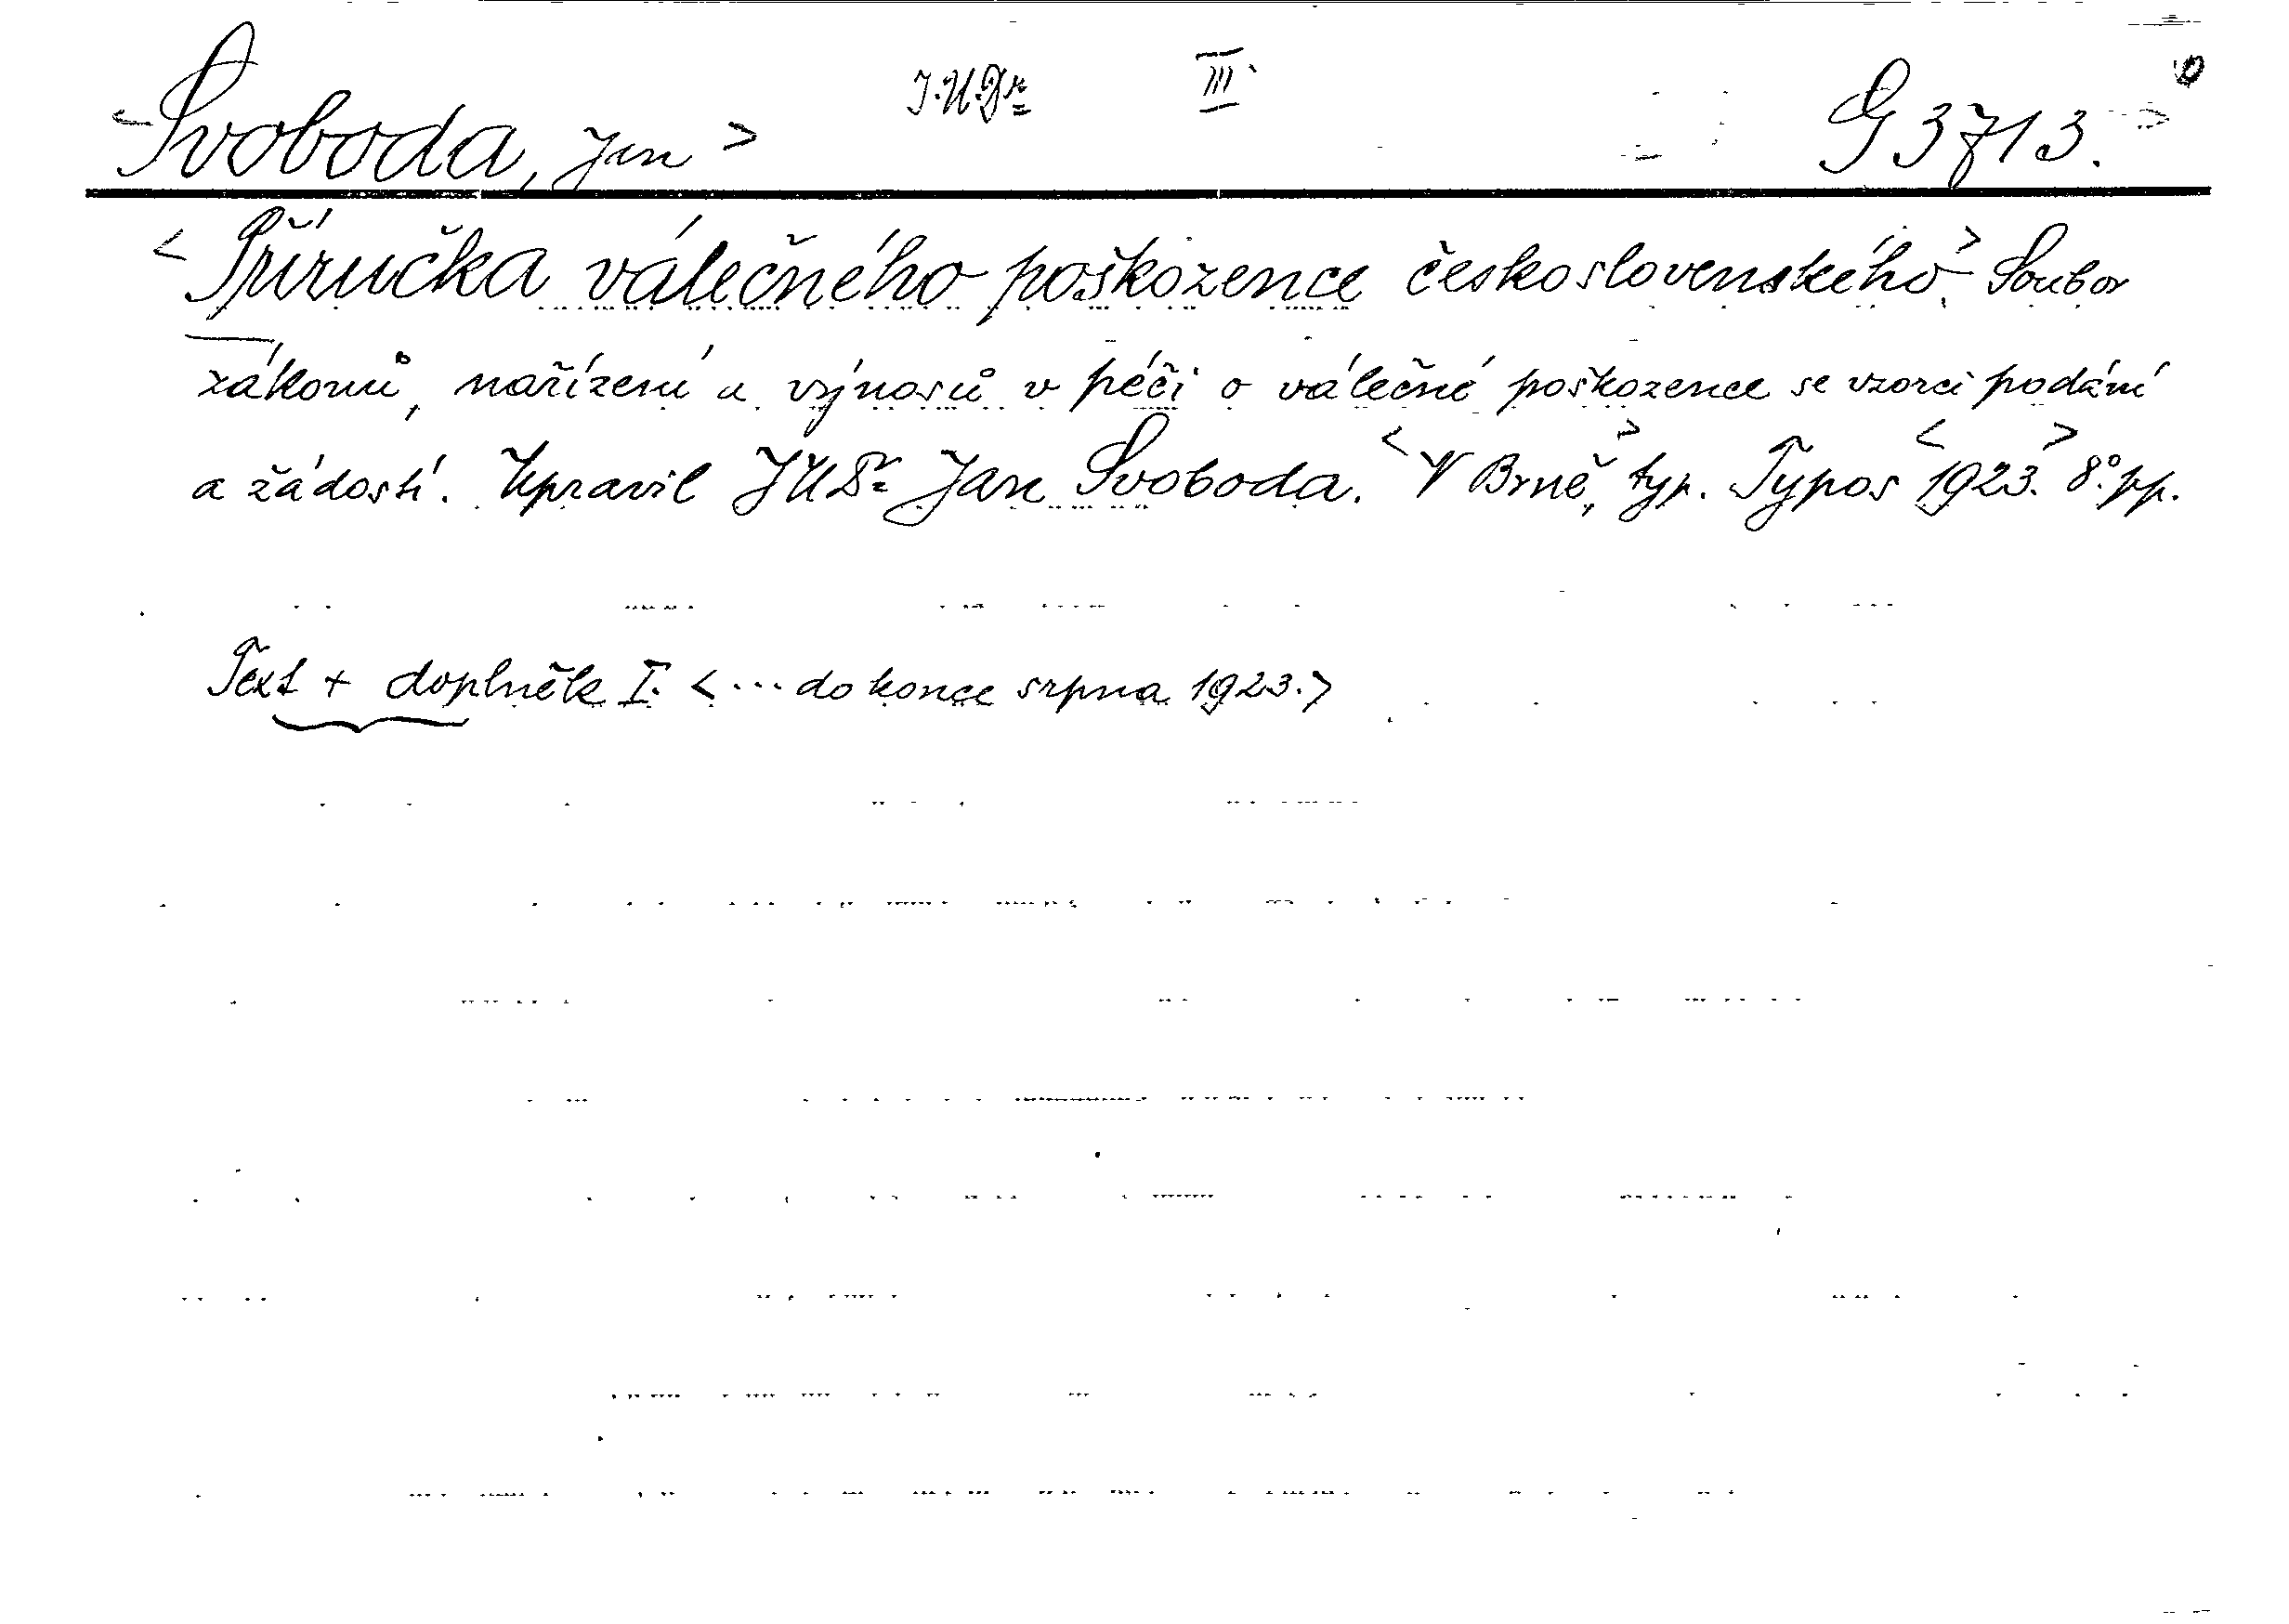 <Svoboda, Jan> J.U.Dr. III. G 3713.
<Příručka válečného poškozence československého.> Soubor
zákonů, nařízení a výnosů v péči o válečné poškozence se vzorci podání
a žádostí. Upravil JUDr. Jan Svoboda. <V Brně,> typ. Typos <1923.> 8° pp.
Text + doplněk I. <... do konce srpna 1923.>